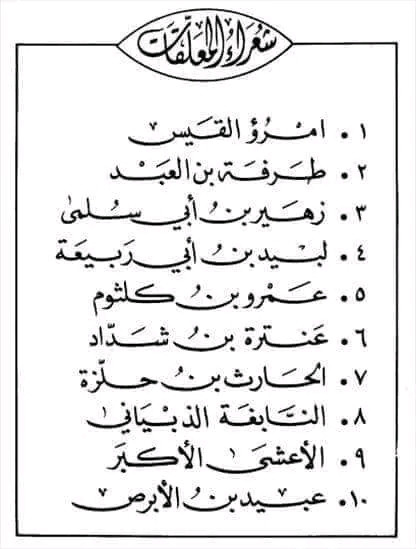 شعراء المعلقات
١ • امرؤ القيس
٢ • طرفة بن العبد
٣ • زهير بن أبي سلمى
٤ • لبيد بن أبي ربيعة
٥ • عمرو بن كلثوم
٦ • عنترة بن شداد
٧ • الحارث بن حلزة
٨ • النابغة الذبياني
٩ • الأعشى الأكبر
١٠ • عبيد بن الأبرص